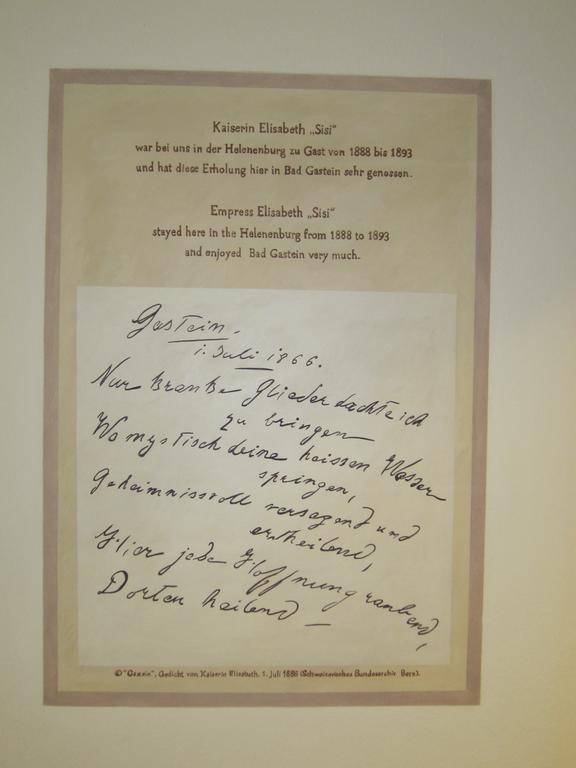 Kaiserin Elisabeth „Sisi“
war bei uns in der Helenenburg zu Gast von 1888 bis 1893
und hat diese Erholung hier in Bad Gastein sehr genossen.
Empress Elisabeth „Sisi“
stayed here in the Helenenburg from 1888 to 1893
and enjoyed Bad Gastein very much.
Gastein.
1. Juli 1866.
Nur kranke Glieder dachte ich
zu bringen
Wo mystisch deine heissen Wasser
springen,
Geheimnissvoll versagend und
ertheilend,
Hier jede Hoffnung raubend,
Dorten heilend —
© "Gastein", Gedicht von Kaiserin Elisabeth, 1. Juli 1886 (Schweizerisches Bundesarchiv Bern).